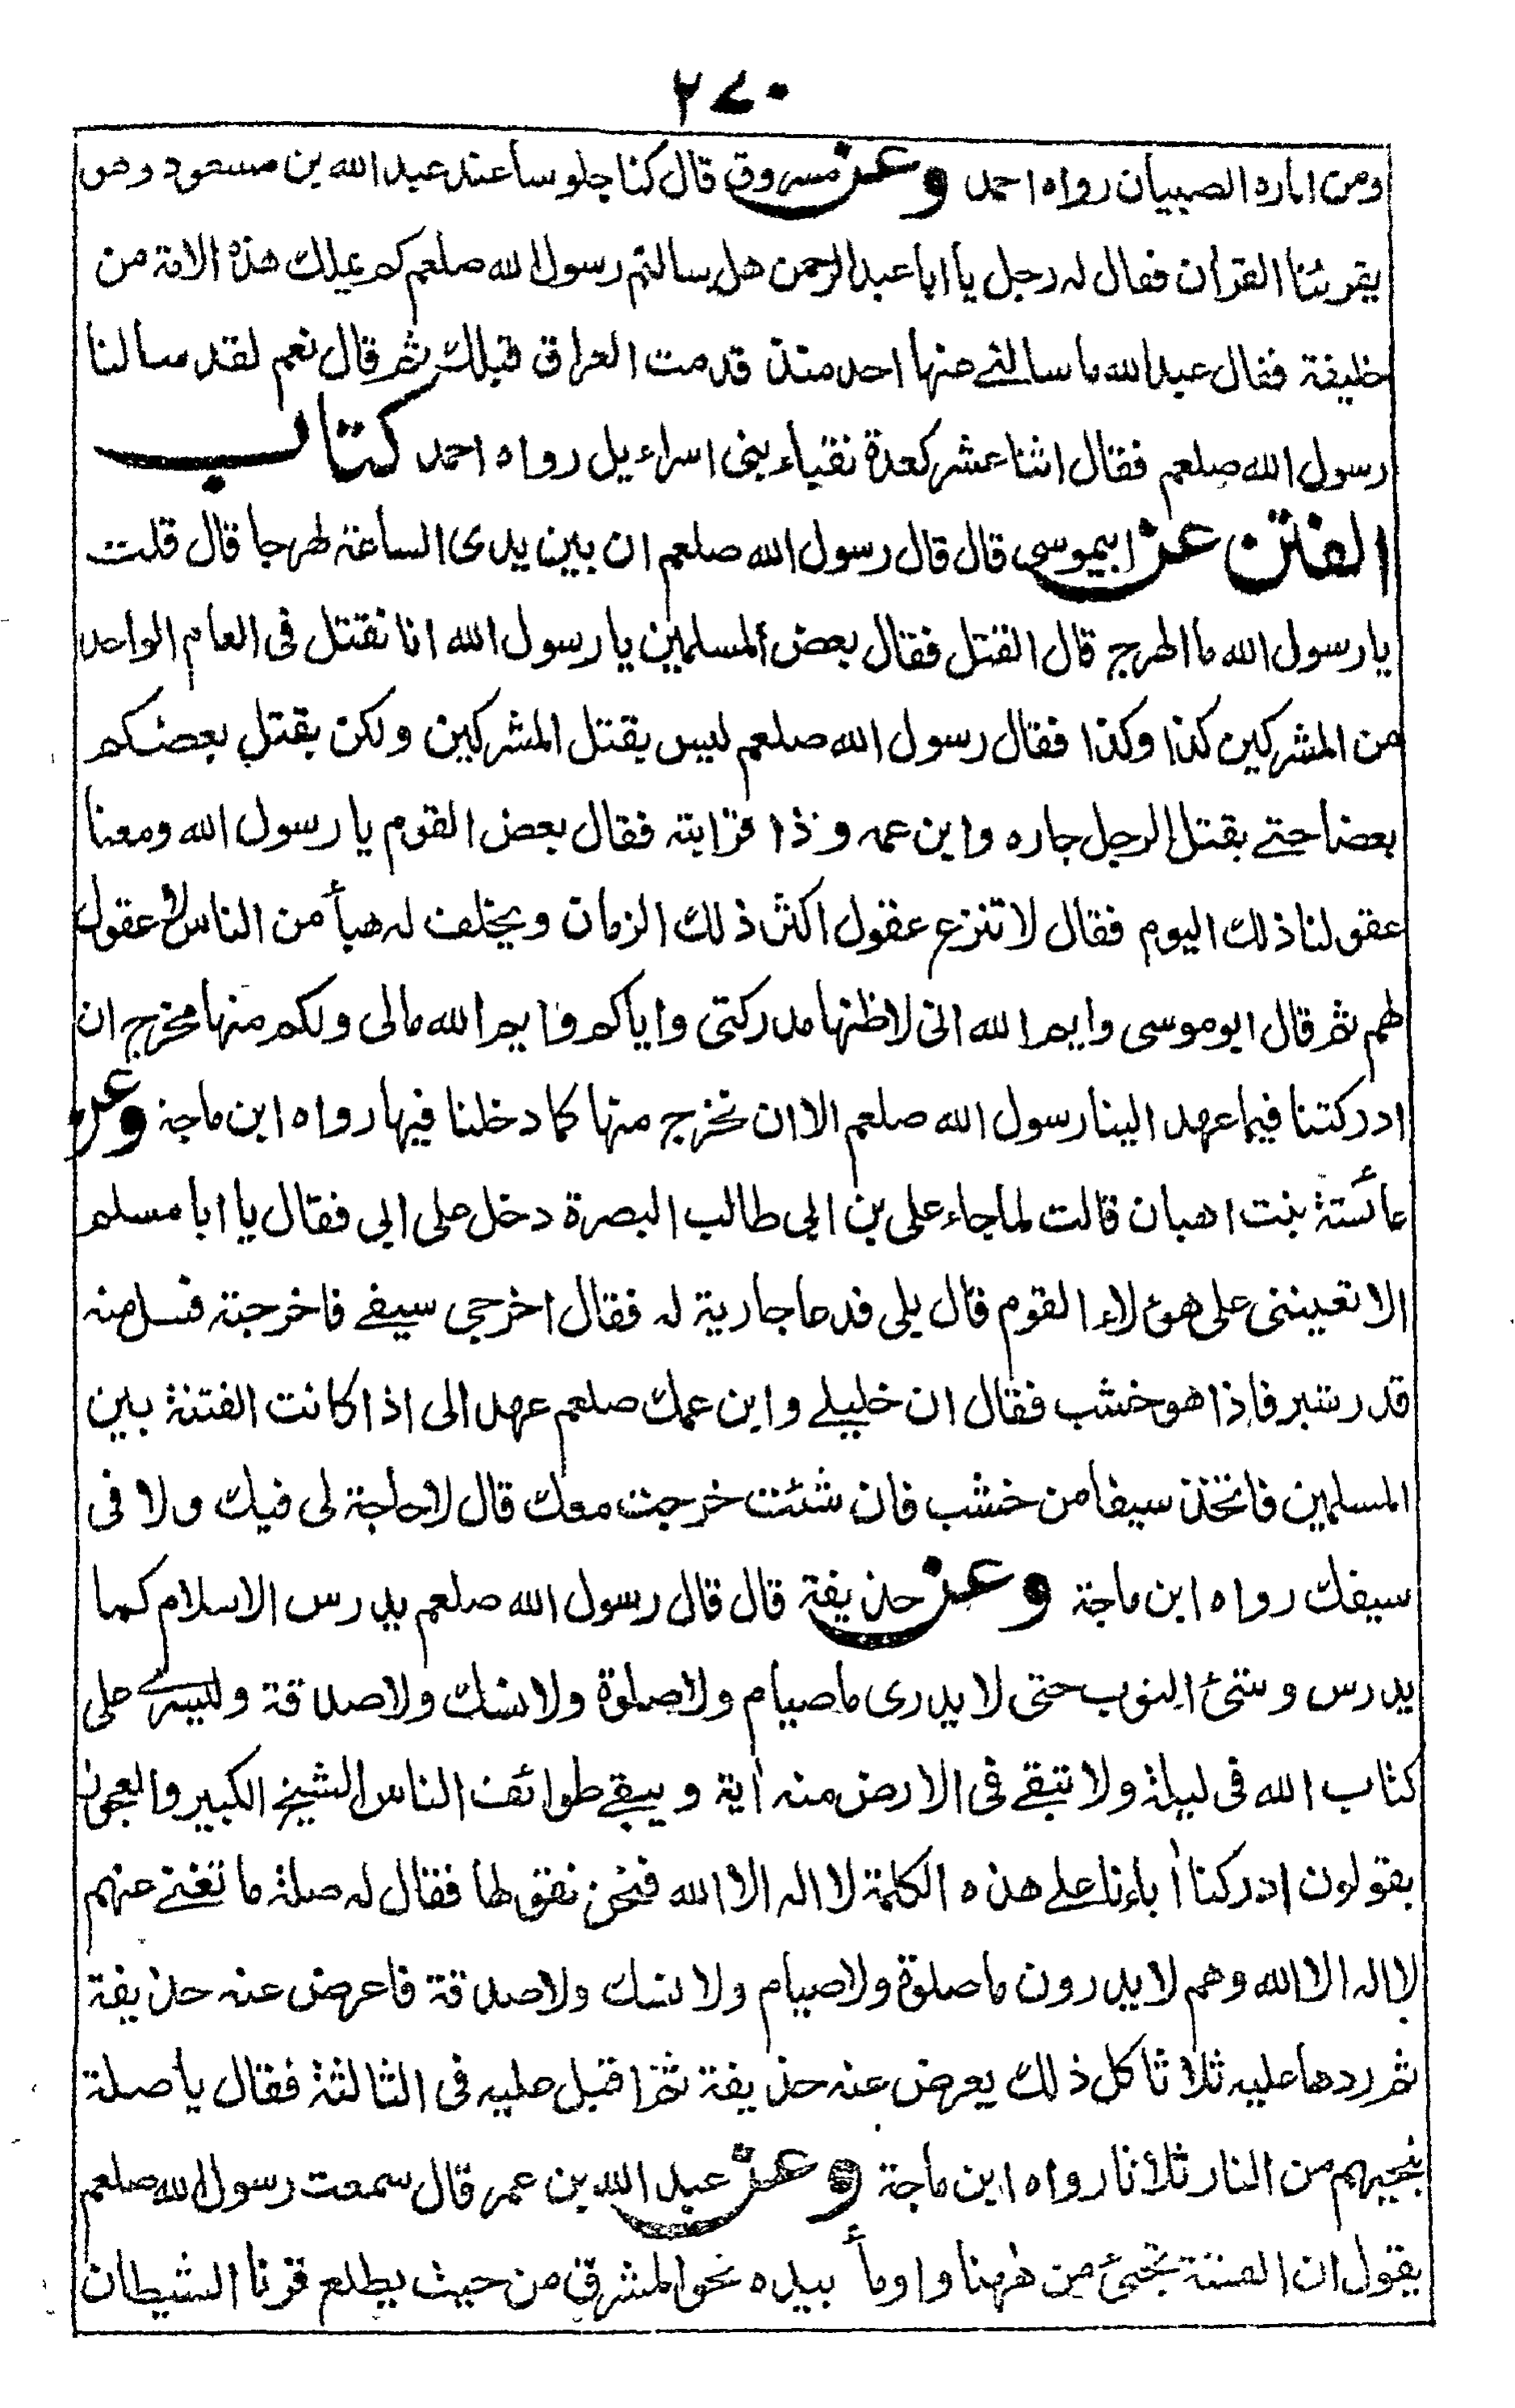 ٢٧٠
ومن امارة الصبيان رواه احمد وعن مسروق قال كنا جلوسا عند عبد الله بن مسعود وهو
يقرئنا القرآن فقال له رجل يا ابا عبد الرحمن هل سالتم رسول الله صلعم كم يملك هذه الامة من
خليفة فقال عبد الله ما سالنے عنها احد منذ قدمت العراق قبلك ثم قال نعم لقد سالنا
رسول الله صلعم فقال اثنا عشر كعدة نقباء بنى اسراءيل رواه احمد كتاب
الفتن عن ابيموسى قال قال رسول الله صلعم ان بين يدى الساعة لهرجا قال قلت
يا رسول الله ما الهرج قال القتل فقال بعض المسلمين يا رسول الله انا نقتل فى العام الواحد
من المشركين كذا وكذا فقال رسول الله صلعم ليس بقتل المشركين ولكن يقتل بعضكم
بعضا حتے يقتل الرجل جاره وابن عمه وذا قرابته فقال بعض القوم يا رسول الله ومعنا
عقولنا ذلك اليوم فقال لا تنزع عقول اكثر ذلك الزمان ويخلف له هبأ من الناس لا عقول
لهم ثم قال ابو موسى وايم الله انى لاظنها مدركتى واياكم وايم الله مالى ولكم منها مخرج ان
ادركتنا فيما عهد الينا رسول الله صلعم الا ان نخرج منها كما دخلنا فيها رواه ابن ماجة وعن
عائسة بنت اهبان قالت لما جاء على بن ابى طالب البصرة دخل على ابى فقال يا ابا مسلم
الا تعيننى على هؤلاء القوم قال بلى فدعا جارية له فقال اخرجى سيفے فاخرجته فسل منه
قدر شبر فاذا هو خشب فقال ان خليلے وابن عمك صلعم عهد الى اذا كانت الفتنة بين
المسلمين فاتخذ سيفا من خشب فان شئت خرجت معك قال لا حاجة لى فيك ولا فى
سيفك رواه ابن ماجة وعن حذيفة قال قال رسول الله صلعم يدرس الاسلام كما
يدرس وشئ الثوب حتى لا يدرى ما صيام ولا صلوة ولا نسك ولا صدقة وليسرے على
كتاب الله فى ليلة ولا تبقے فى الارض منه آية ويبقے طوائف الناس الشيخ الكبير والعجوز
يقولون ادركنا آباءنا علے هذه الكلمة لا اله الا الله فنحن نقولها فقال له صلة ما تغنے عنهم
لا اله الا الله وهم لا يدرون ما صلوة ولا صيام ولا نسك ولا صدقة فاعرض عنه حذيفة
ثم ردها عليه ثلاثا كل ذلك يعرض عنه حذيفة ثم اقبل عليه فى الثالثة فقال يا صلة
تنجيهم من النار ثلاثا رواه ابن ماجة وعن عبد الله بن عمر قال سمعت رسول الله صلعم
يقول ان الفتنة تجئ من ههنا واومأ بيده نحو المشرق من حيث يطلع قرنا الشيطان